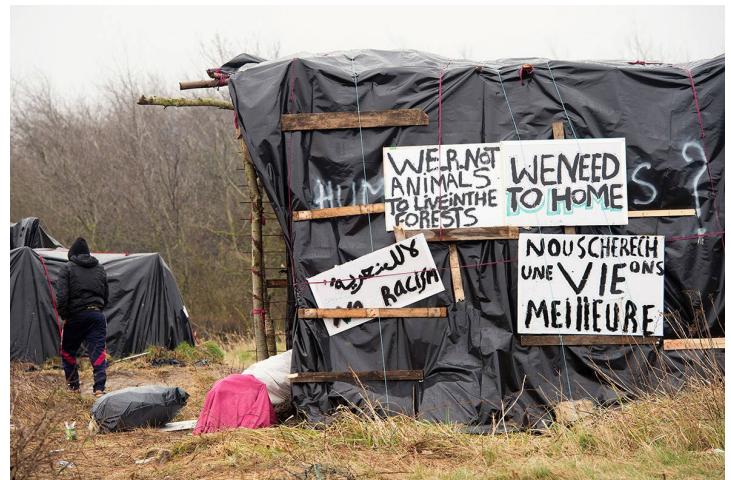 WE.R.NOT
ANIMALS
TO LIVE IN THE
FORESTS
WE NEED
TO HOME
لا للعنصرية
NO RACISM
NOUS CHERECH
UNE VIE ONS
MEILLEURE
?